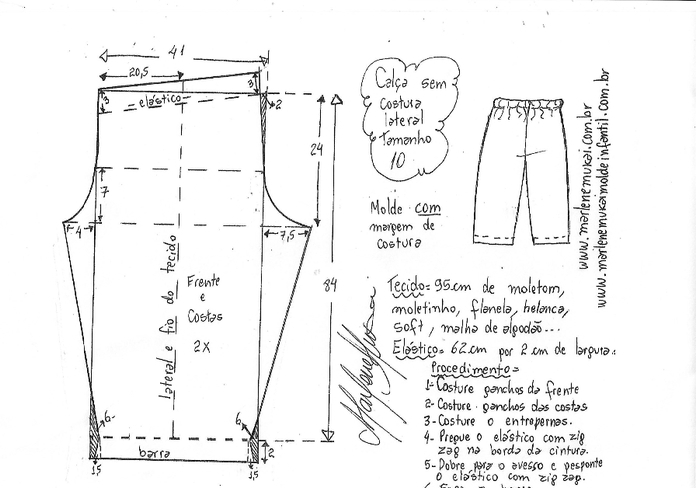 41
20,5
3
elástico
3
2
24
7
4
7,5
84
lateral e fio do tecido
Frente
e
Costas
2X
6
6
barra
2
1,5
1,5
Calça sem
Costura
lateral
Tamanho
10
Molde com
margem de
costura
www.marlenemukai.com.br
www.marlenemukaimoldeinfantil.com.br
Tecido= 95cm de moletom,
moletinho, flanela, helanca,
soft, malha de algodão...
Elástico= 62cm por 2 cm de largura.
Procedimento=
1- Costure ganchos da frente
2- Costure ganchos das costas
3- Costure o entrepernas.
4- Pregue o elástico com zig
zag na borda da cintura.
5- Dobre para o avesso e pesponte
o elástico com zig zag.